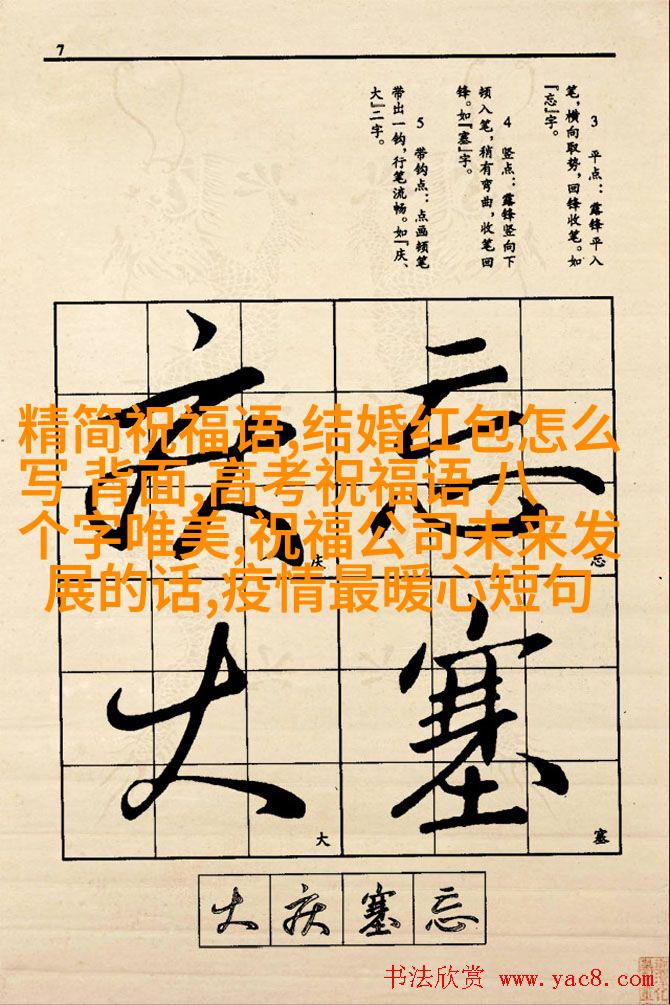 7
3 平点：露锋平入
笔，横向取势，回锋收笔。如
『忘』字。
4 竖点：露锋竖向下
顿入笔，稍有弯曲，收笔回
锋。如『塞』字。
5 带钩点：点画顿笔
带出一钩，行笔流畅。如『庆、
大』二字。
精简祝福语,结婚红包怎么
写 背面,高考祝福语 八
个字唯美,祝福公司未来发
展的话,疫情最暖心短句
忘
庆
塞
大
忘
庆
塞
大
大庆塞忘
书法欣赏 www.yac8.com